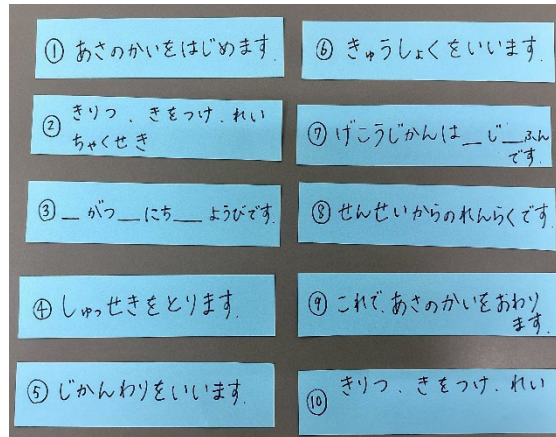 ① あさのかいをはじめます.
② きりつ、きをつけ、れい
ちゃくせき
③ _ がつ _ にち _ ようびです.
④ しゅっせきをとります.
⑤ じかんわりをいいます.
⑥ きゅうしょくをいいます.
⑦ げこうじかんは _ じ _ ふん
です.
⑧ せんせいからのれんらくです.
⑨ これで、あさのかいをおわり
ます.
⑩ きりつ、きをつけ、れい